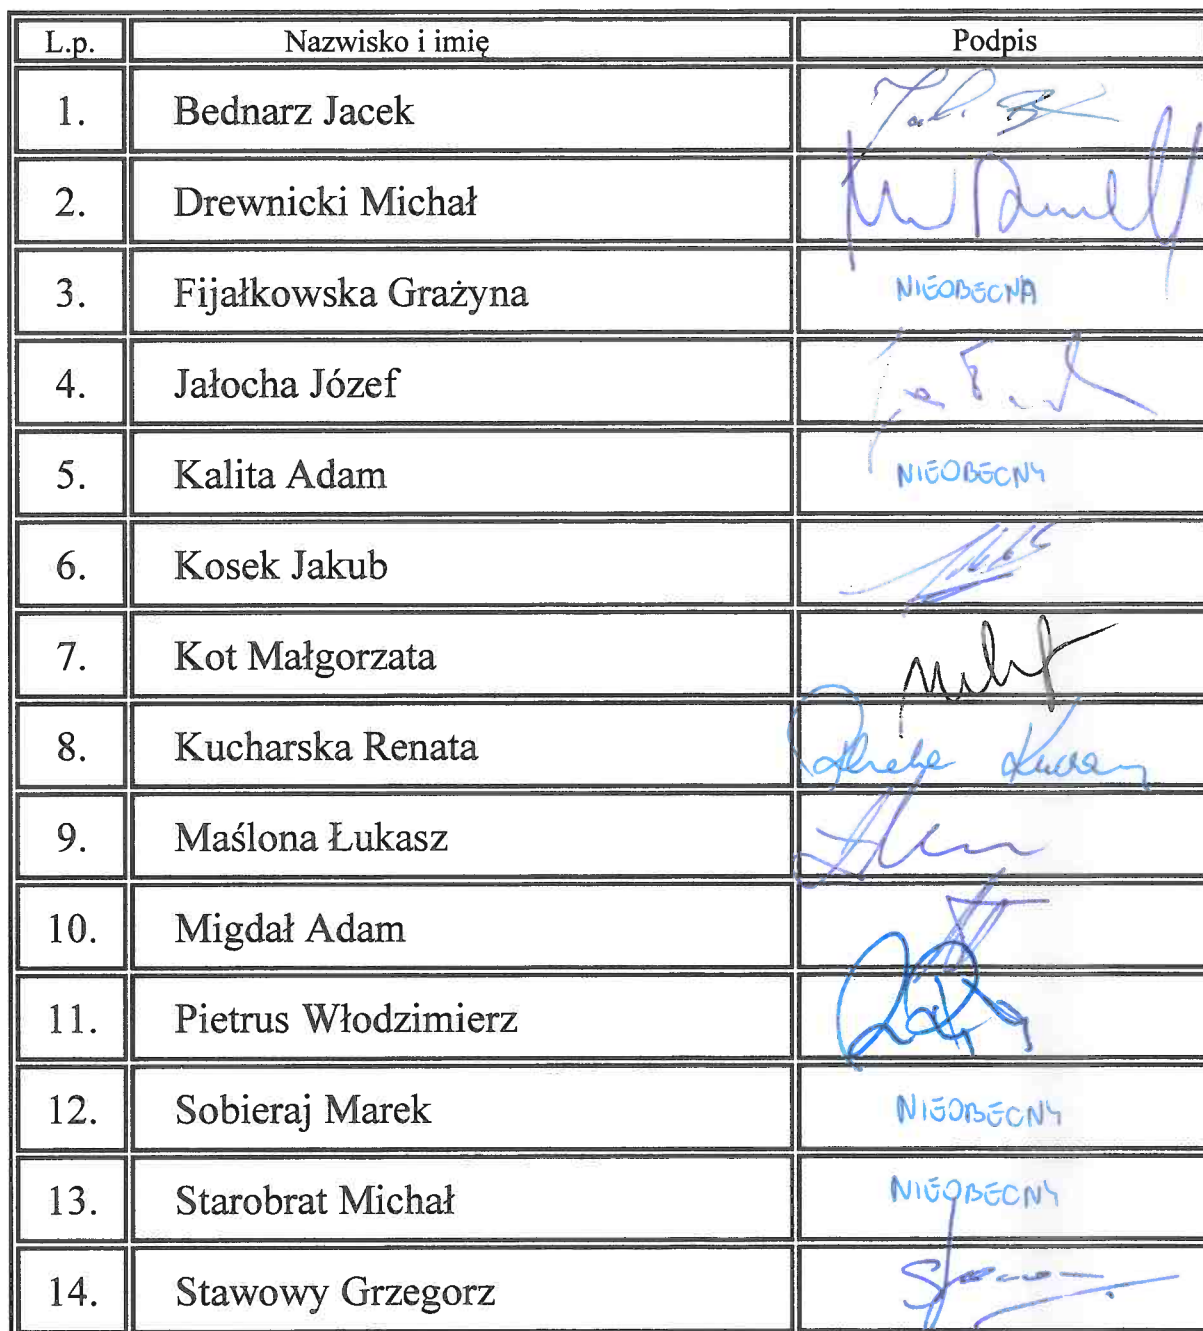 L.p. Nazwisko i imię Podpis
1. Bednarz Jacek
2. Drewnicki Michał
3. Fijałkowska Grażyna NIEOBECNA
4. Jałocha Józef
5. Kalita Adam NIEOBECNY
6. Kosek Jakub
7. Kot Małgorzata
8. Kucharska Renata
9. Maślona Łukasz
10. Migdał Adam
11. Pietrus Włodzimierz
12. Sobieraj Marek NIEOBECNY
13. Starobrat Michał NIEOBECNY
14. Stawowy Grzegorz